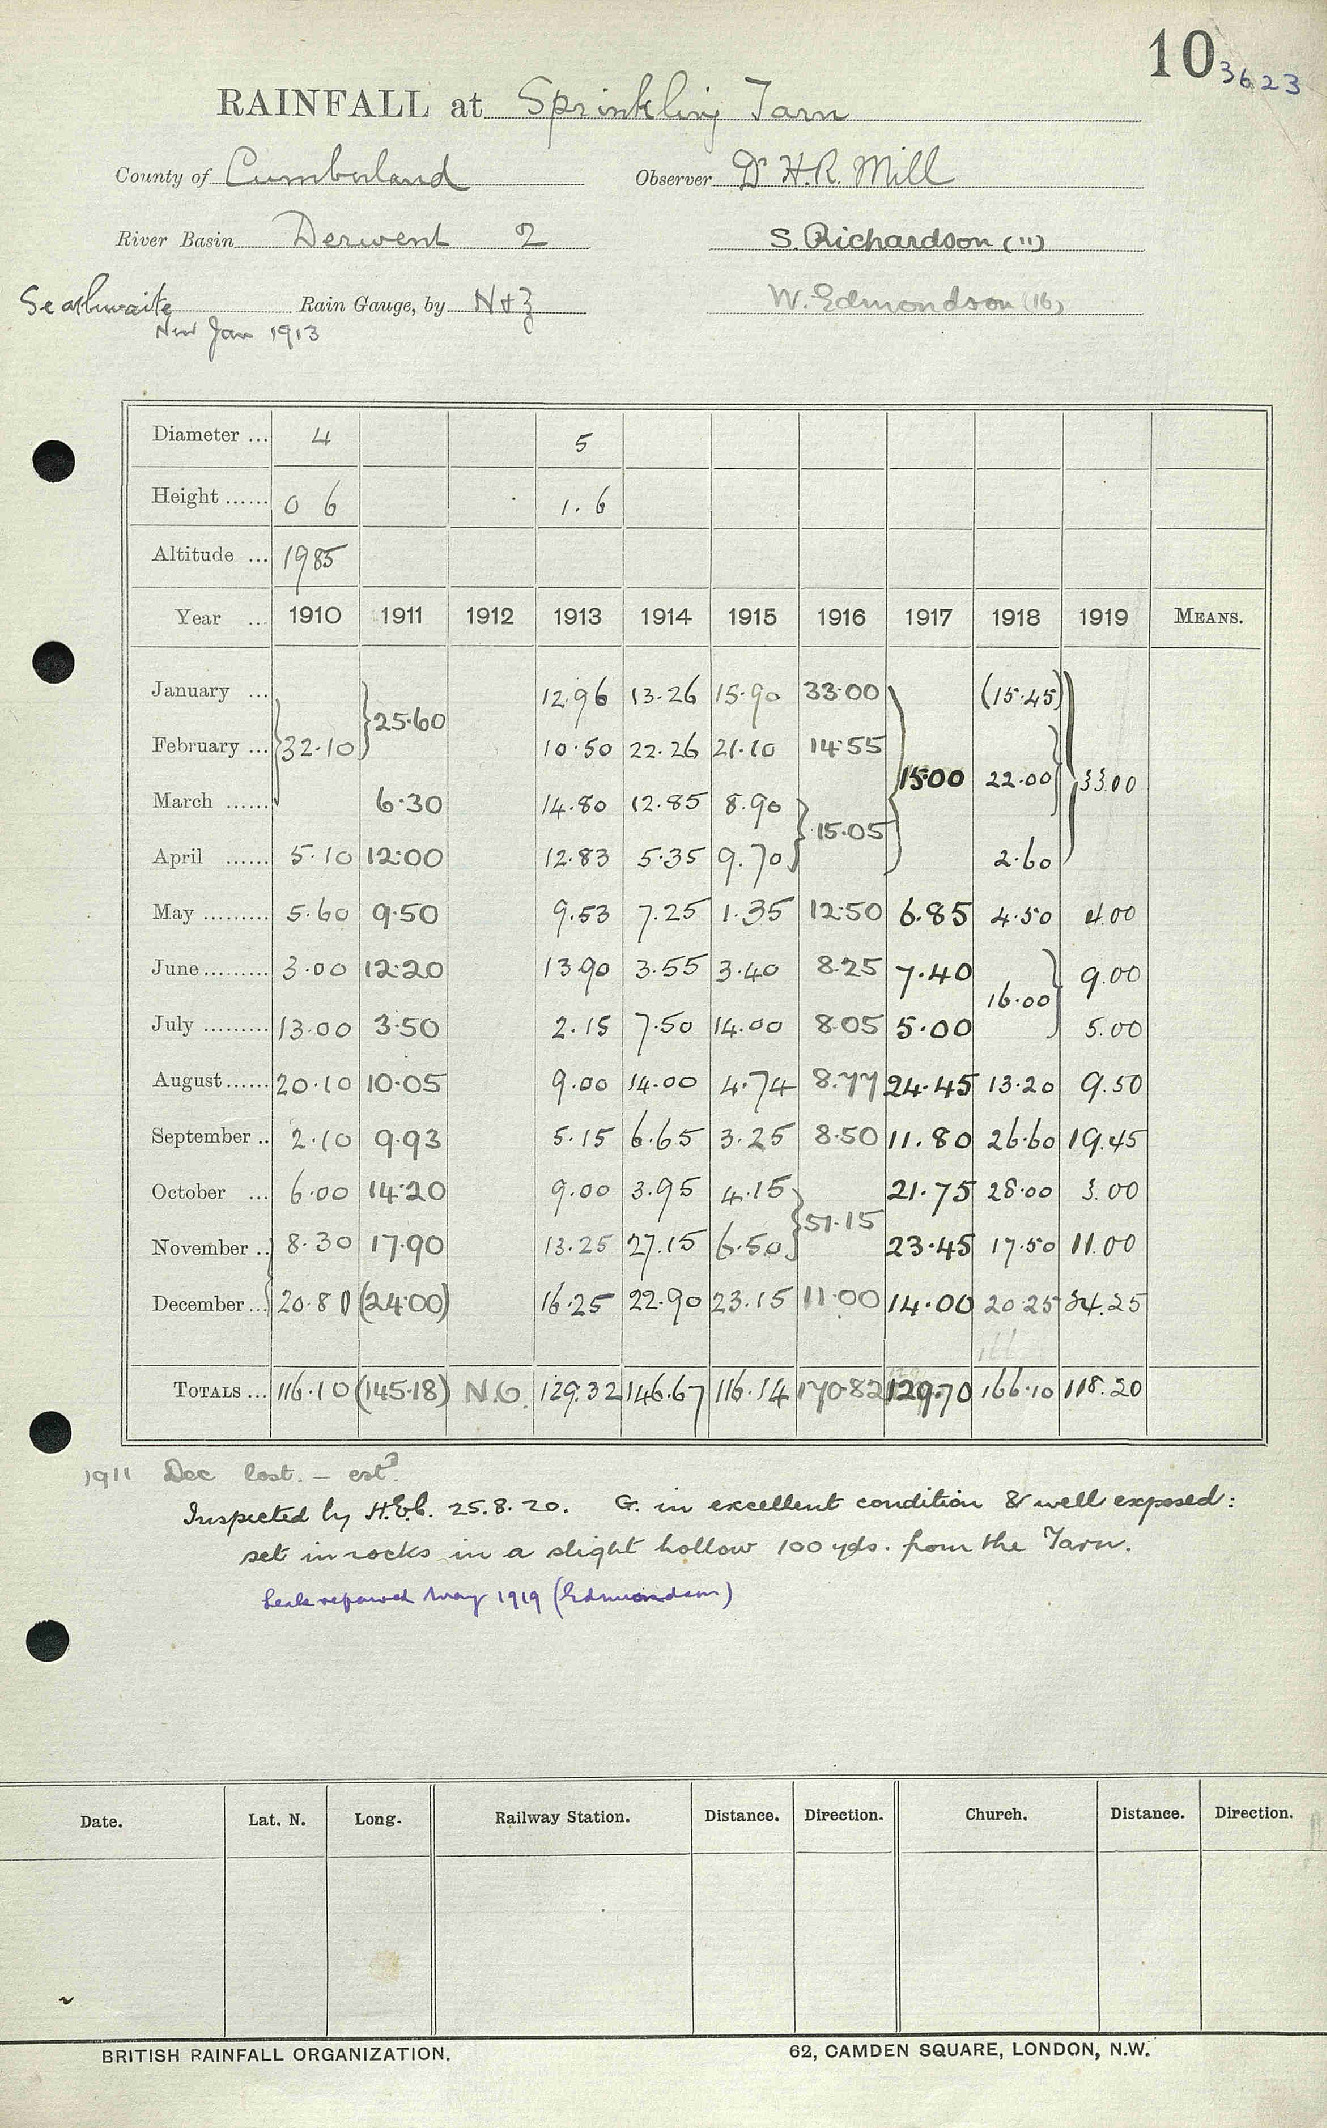 10 3623
RAINFALL at Sprinkling Tarn
County of Cumberland Observer Dr H.R. Mill
River Basin Derwent 2 S. Richardson (11)
Seathwaite Rain Gauge, by N+Z W. Edmondson (16)
New Jan 1913
Diameter ... 4 5
Height ...... 0 6 1.6
Altitude ... 1985
Year ... 1910 1911 1912 1913 1914 1915 1916 1917 1918 1919 MEANS.
January ... 12.96 13.26 15.90 33.00 (15.45)
25.60
February ... 32.10 10.50 22.26 21.10 14.55
15.00 22.00 33.00
March ...... 6.30 14.80 12.85 8.90
15.05
April ...... 5.10 12.00 12.83 5.35 9.70 2.60
May ......... 5.60 9.50 9.53 7.25 1.35 12.50 6.85 4.50 4.00
June ......... 3.00 12.20 13.90 3.55 3.40 8.25 7.40 9.00
16.00
July ......... 13.00 3.50 2.15 7.50 14.00 8.05 5.00 5.00
August ...... 20.10 10.05 9.00 14.00 4.74 8.77 24.45 13.20 9.50
September .. 2.10 9.93 5.15 6.65 3.25 8.50 11.80 26.60 19.45
October ... 6.00 14.20 9.00 3.95 4.15 21.75 28.00 3.00
51.15
November .. 8.30 17.90 13.25 27.15 6.50 23.45 17.50 11.00
December ... 20.80 (24.00) 16.25 22.90 23.15 11.00 14.00 20.25 24.25
TOTALS ... 116.10 (145.18) N.O. 129.32 146.67 116.14 170.82 129.70 166.10 118.20
1911 Dec lost. – estd.
Inspected by 25.8.20. G. in excellent condition & well exposed:
set in rocks in a slight hollow 100 yds. from the Tarn.
Leak repaired May 1919 (Edmondson)
Date. Lat. N. Long. Railway Station. Distance. Direction. Church. Distance. Direction.
BRITISH RAINFALL ORGANIZATION. 62, CAMDEN SQUARE, LONDON, N.W.